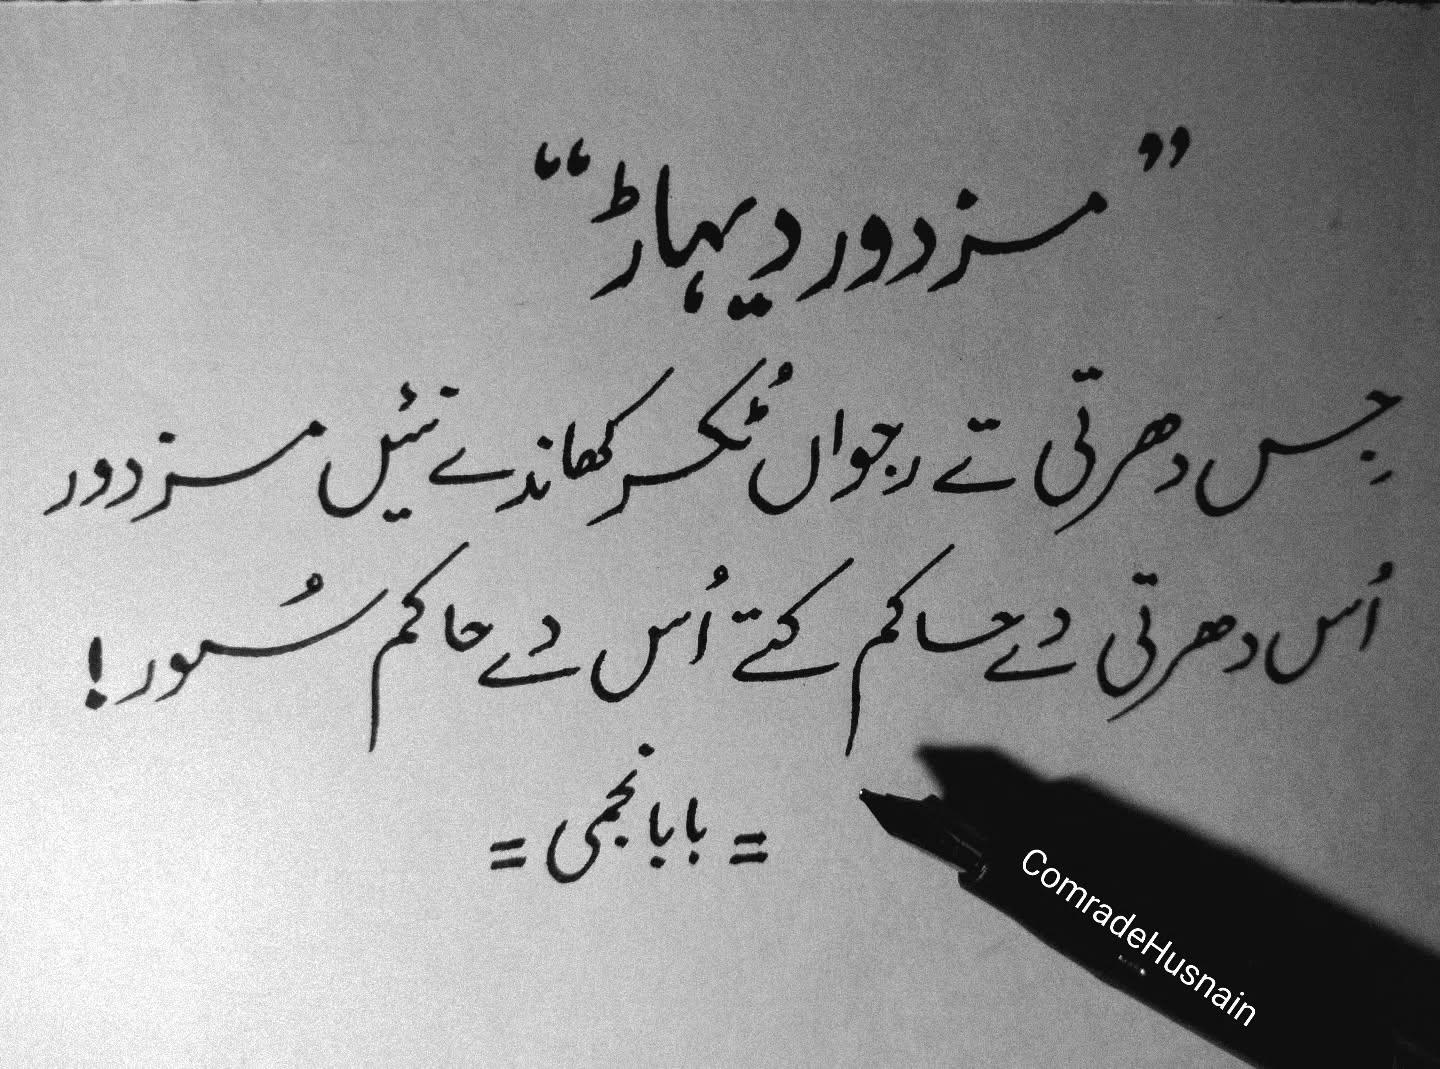 ”مزدور دیہاڑ“
جِس دھرتی تے رجواں ٹُکر کھاندے نئیں مزدور
اُس دھرتی دے حاکم کتے اُس دے حاکم سُور!
= بابا نجمی =
ComradeHusnain